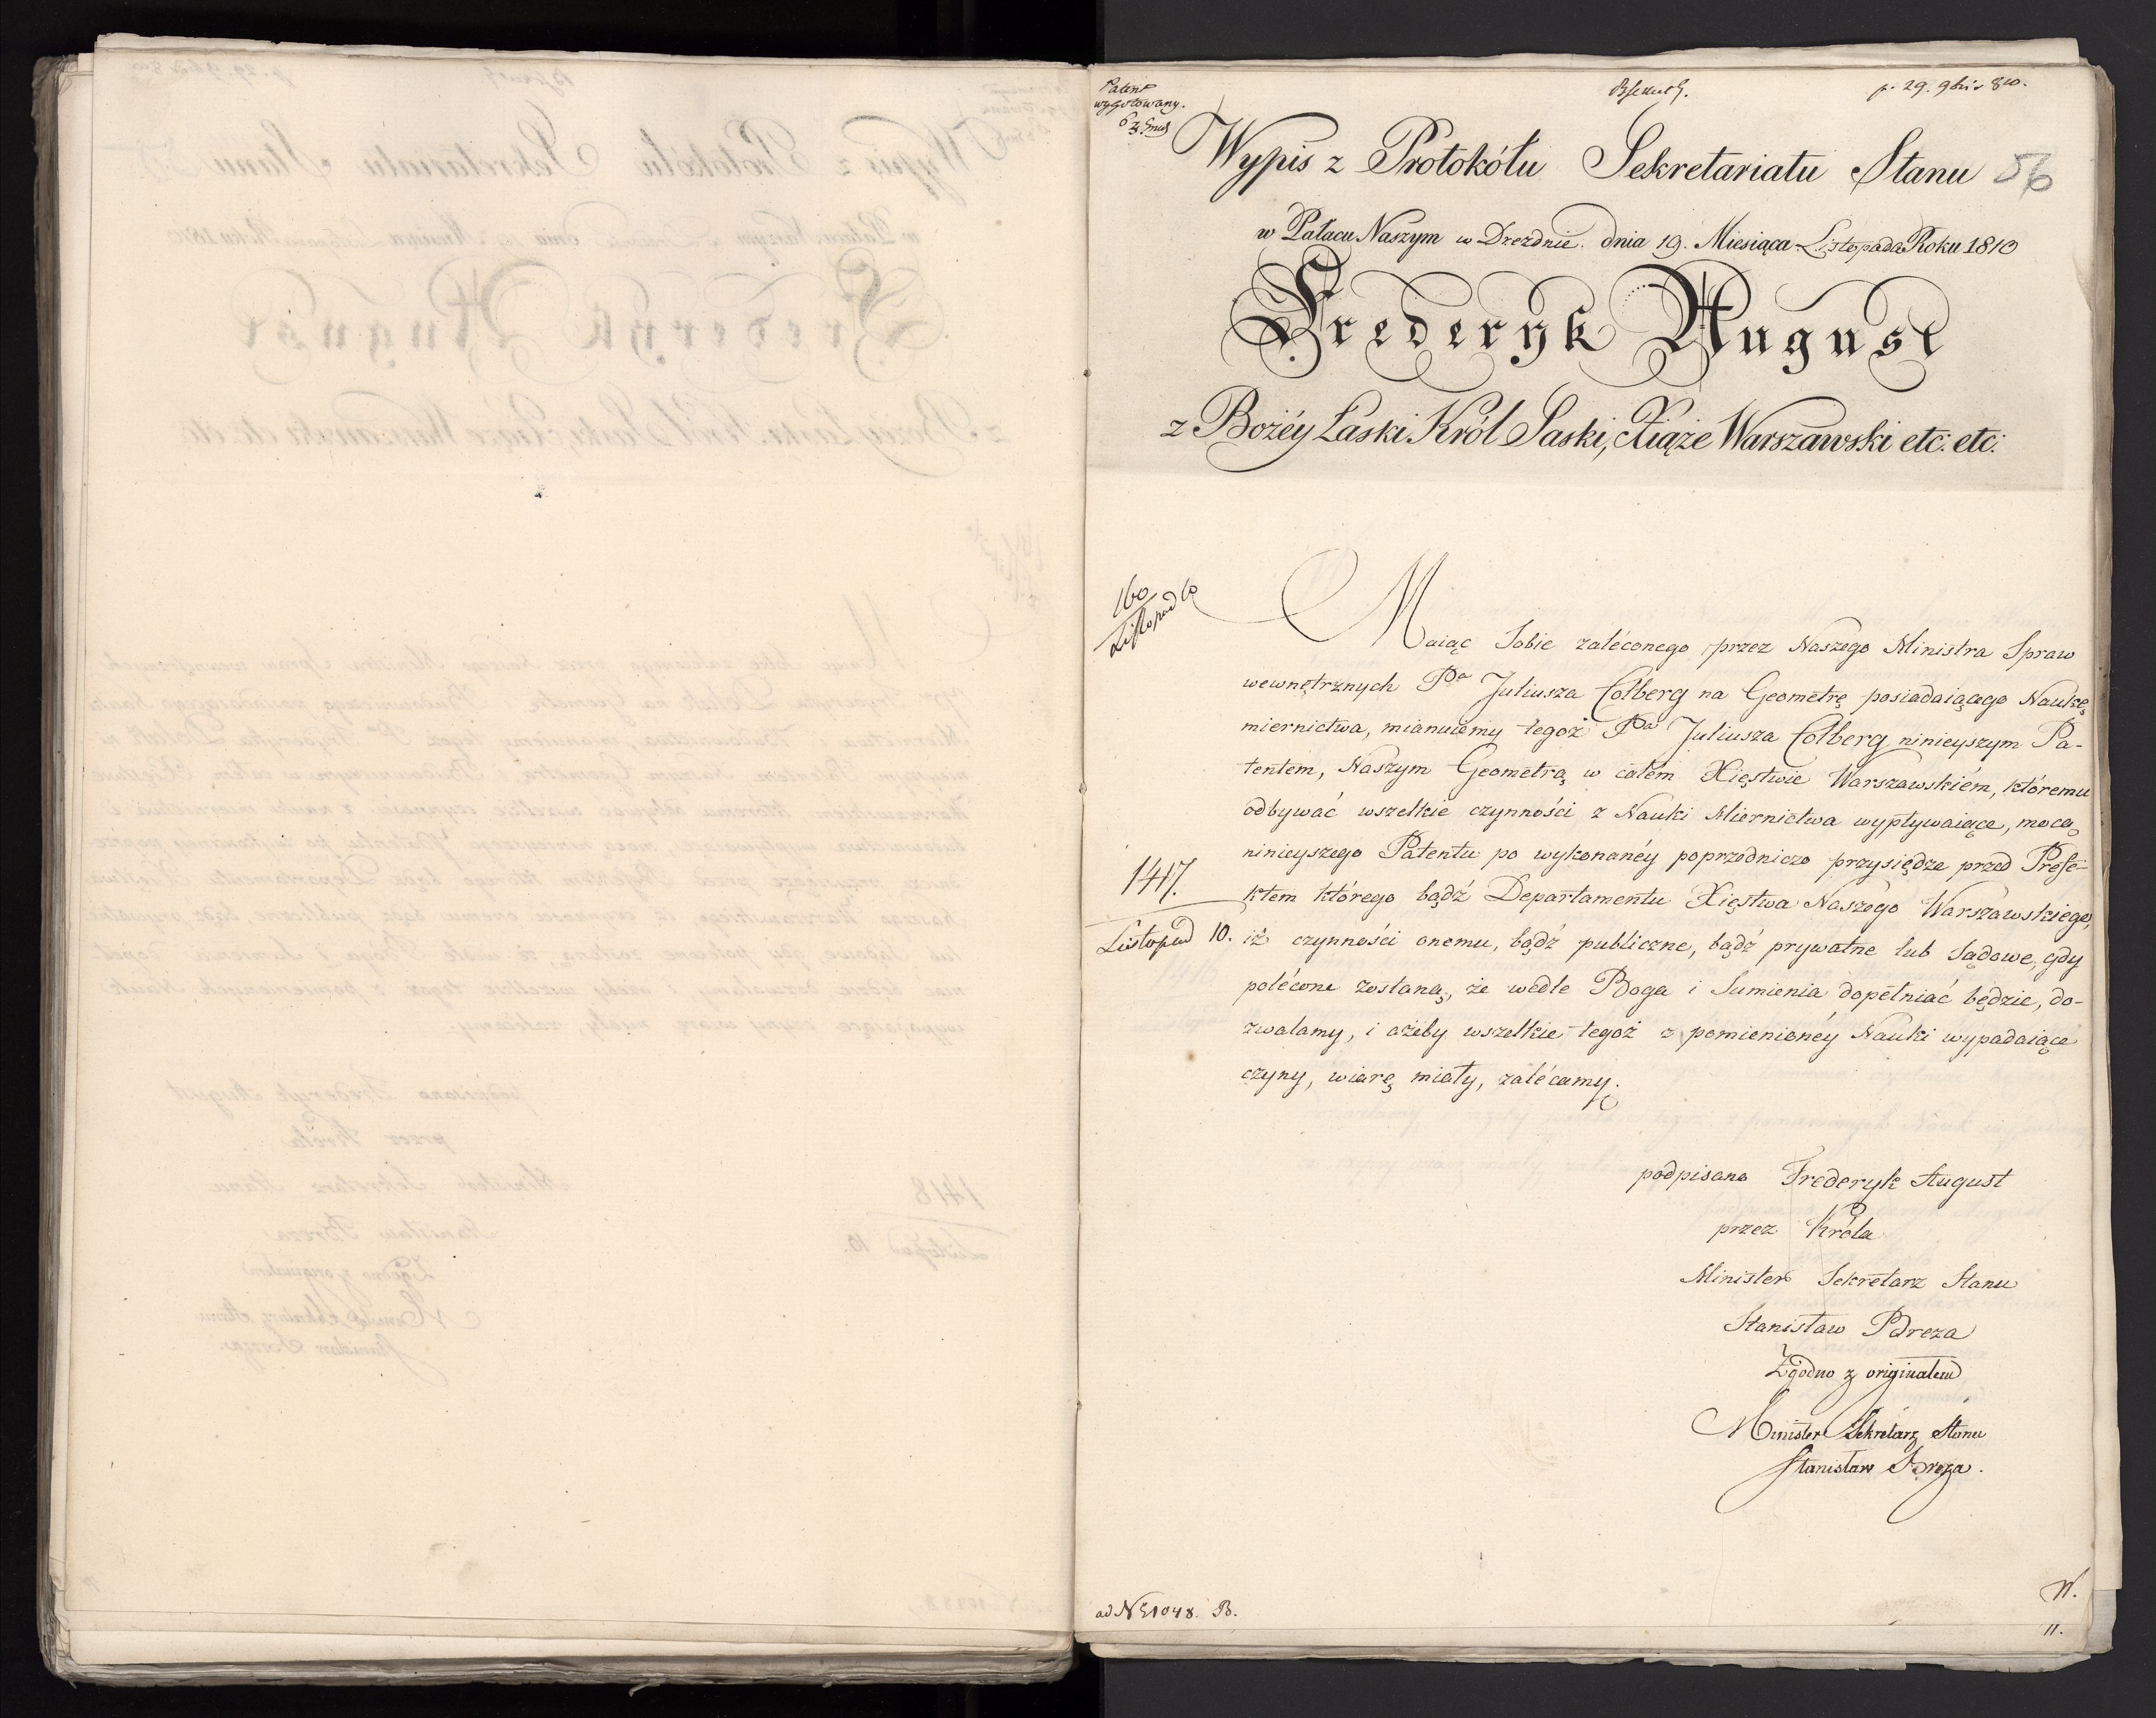 Patent
wygotowany.
p. 29. 9bris 810.
Wypis z Protokółu Sekretariatu Stanu 56
w Pałacu Naszym w Dreznie. dnia 19. Miesiąca Listopada Roku 1810
Frederyk August
z Bożéy Łaski Król Saski, Xiąże Warszawski etc: etc:
160
Listopad 10
Maiąc Sobie zaléconego przez Naszego Ministra Spraw
wewnętrznych Pa Juliusza Colberg na Geometrę posiadaiącego Naukę
miernictwa, mianuiemy tegoż Pa Juliusza Colberg ninieyszym Pa-
tentem, Naszym Geometrą w całem Xięstwie Warszawskiém, któremu
odbywać wszelkie czynności z Nauki Miernictwa wypływaiące, mocą
ninieyszego Patentu po wykonanéy poprzedniczo przysiędze przed Prefe-
1417.
ktem którego bądź Departamentu Xięstwa Naszego Warszawskiego,
Listopad 10.
iż czynności onemu, bądź publiczne, bądź prywatne lub Sądowe, gdy
polécone zostaną, że wedle Boga i Sumienia dopełniać będzie, do-
zwalamy, i ażeby wszelkie tegoż z pomienionéy Nauki wypadaiące
czyny, wiarę miały, zalécamy.
podpisano Frederyk August
przez Króla
Minister Sekretarz Stanu
Stanisław Breza
Zgodno z originałem
Minister Sekretarz Stanu
Stanisław Breza.
ad N 51048. B.
W.
11.